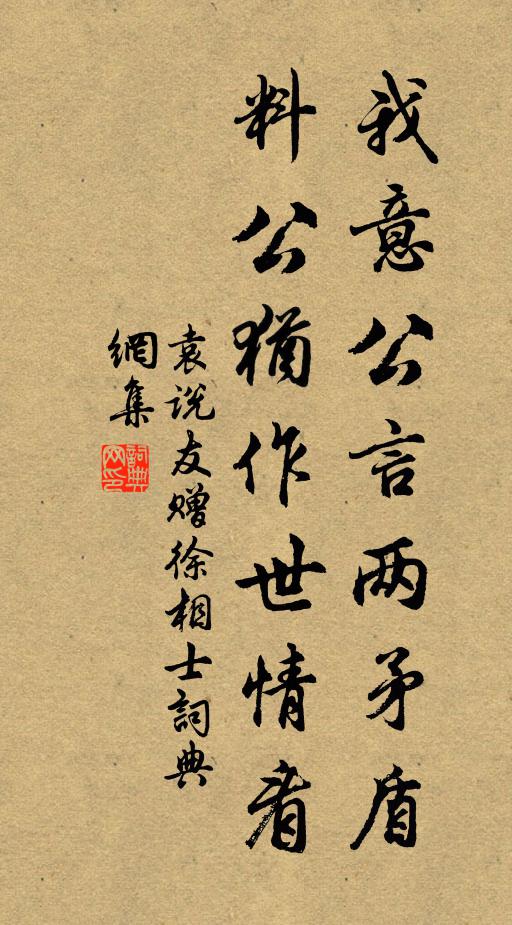 我意公言两矛盾
料公猶作世情看
袁说友赠徐相士詞典
網集
詞典网印